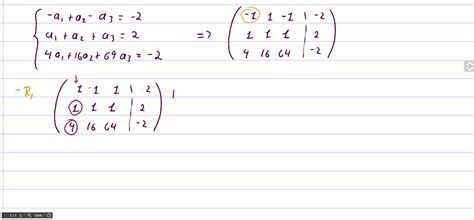 -a₁ + a₂ - a₃ = -2
a₁ + a₂ + a₃ = 2
4a₁ + 16a₂ + 64a₃ = -2
=>
-1 1 -1 | -2
1 1 1 | 2
4 16 64 | -2
-R₁
1 -1 1 | 2
1 1 1 | 2
4 16 64 | -2